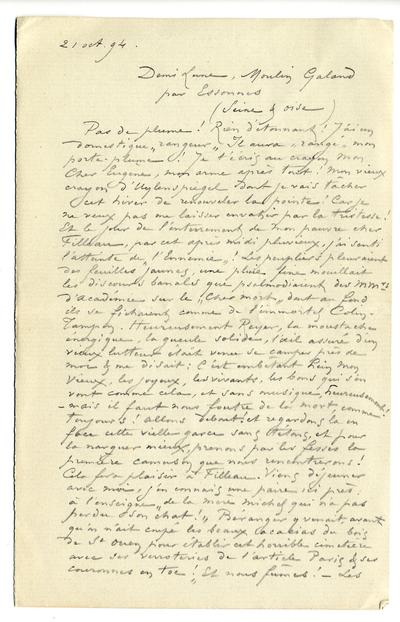 21 oct. 94.
Demi Lune, Moulin Galand
par Essonnes
(Seine & oise)
Pas de plume! Rien d'étonnant! J'ai un
domestique "rangeur" Il aura rangé, mon
porte-plume! Je t'écris au crayon mon
Cher Eugène, mon arme après tout! mon vieux
crayon d'Uylenspiegel dont je vais tâcher
cet hiver de renouveler la pointe! Car je
ne veux pas me laisser envahir par la tristesse!
Et le jour de l'enterrement de mon pauvre cher
Filleau, par cet après midi pluvieux, j'ai senti
l'atteinte de "l'Ennemie"! Les peupliers pleuraient
des feuilles jaunes, une pluie fine mouillait
les discours banals que psalmodiaient des MMrs
d'académie sur le "Cher mort, dont au fond
ils se fichaient comme de l'immortel Colin-
Tampon. Heureusement Peyer, la moustache
énergique, la gueule solide, l'œil assuré d'un
vieux lutteur était venu se camper près de
moi & me disait: C'est embêtant hein mon
Vieux, les joyeux, les vivants, les bons qui s'en
vont comme cela, et sans musique, heureusement!
- mais il faut nous foutre de la mort, comme
toujours! allons debout! et regardons la en
face cette vieille garce sans tétons, et pour
la narguer mieux, prenons par les fesses la
première que nous rencontrerons!
Cela fera plaisir à Filleau. Viens déjeuner
avec moi, j'en connais une paire, ici près
à l'enseigne "de la mère michel qui n'a pas
perdu son chat!" Béranger y venait avant
qu'on n'ait coupé les beaux acacias du bois
de St Ouen pour établir cet horrible cimetière
avec ses verroteries de l'article Paris & ses
couronnes en toc! Et nous fûmes! - Les